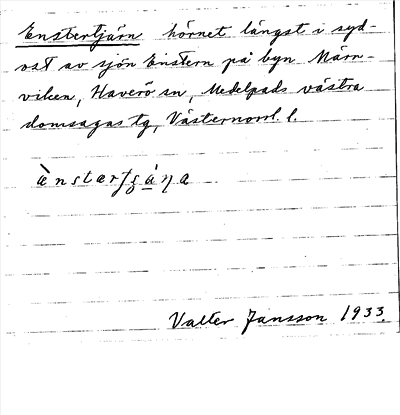 Enstertjärn hörnet längst i syd-
ost av sjön Enstern på byn Närn-
viken, Haverö sn, Medelpads västra
domsagas tg, Västernorrl. l.
Valter Jansson 1933.